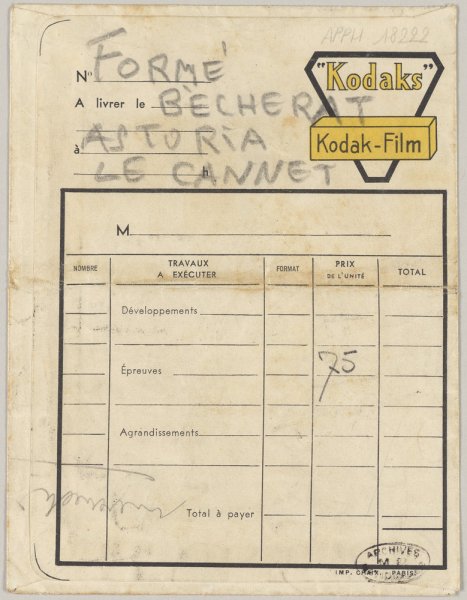 APPH 18222
"Kodaks"
Kodak-Film
N° FORMÉ
A livrer le BÈCHERAT
à ASTORIA
LE CANNET h
M
NOMBRE TRAVAUX A EXÉCUTER FORMAT PRIX DE L'UNITÉ TOTAL
Développements
Épreuves 75
Agrandissements
Total à payer
ARCHIVES
(IMP. CHAIX. PARIS)